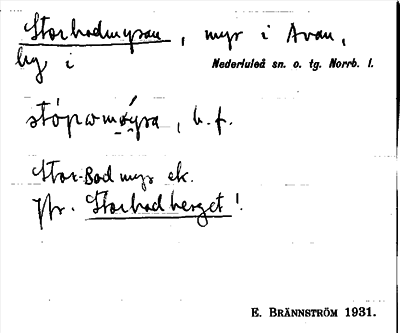 Storbodmyran, myr i Avan,
by i Nederluleå sn. o. tg. Norrb. l.
b. f.
Stor-Bod myr ek.
Jfr. Storbodberget!
E. BRÄNNSTRÖM 1931.